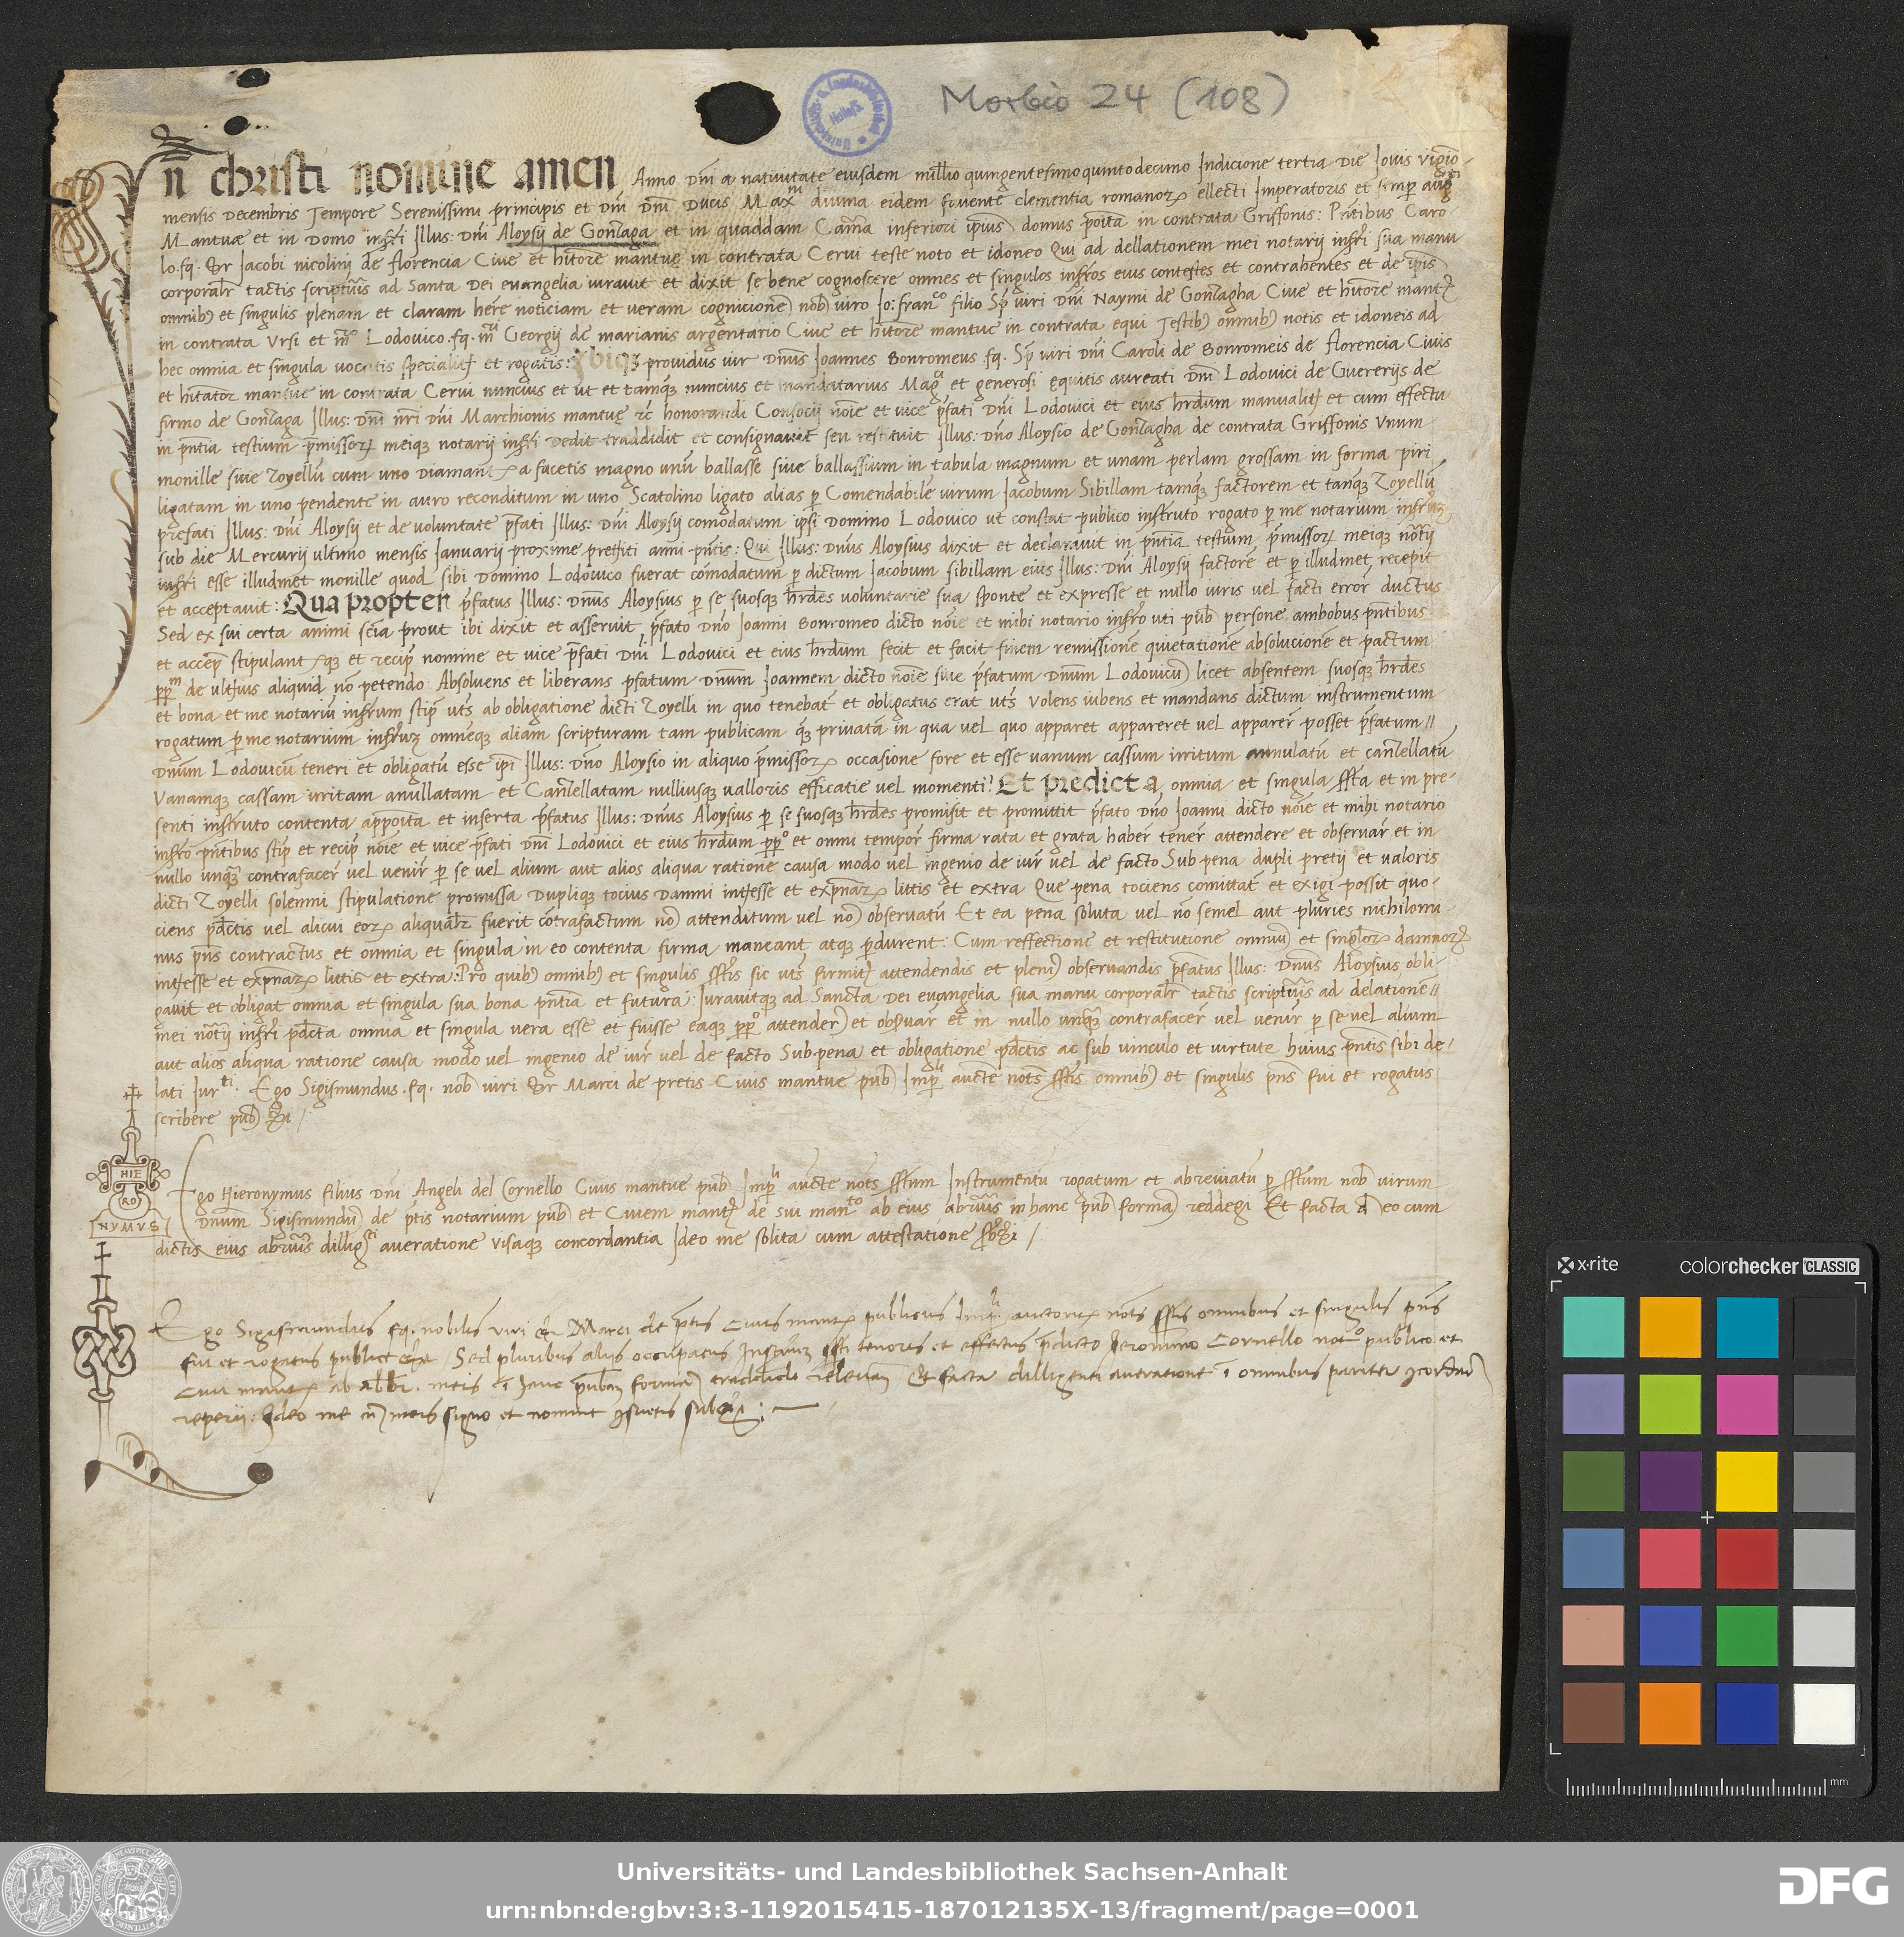 Morbio 24 (108)
In christi nomine amen Anno Dñi a nativitate eiusdem millõ quingentesimo quinto decimo Indicione tertia Die Iovis vigẽo
mensis Decembris Tempore Serenissimi principis et Dñi Dñi Ducis Maxᵐⁱ divina eidem favente clementia romanoꝝ ellecti Imperatoris et semꝑ augᵗⁱ
Mantuæ et in Domo infrĩ Illus: Dñi Aloysij de Gonzaga et in quaddam Camẽa inferiori ipius domus põita in contrata Griffonis: Pñtibus Caro
lo .fq. Sr Iacobi nicolinij de florencia Cive et hitore mantuę in contrata Cervi teste noto et idoneo Qui ad dellationem mei notarij infrĩ sua manu
corporalr tactis scripturis ad Santa Dei evangelia iuravit et dixit se bene cognoscere omnes et singulos infros eius contestes et contrahentes et de ipis
omnibꝫ et singulis plenam et claram here noticiam et veram cognicione nob viro Io: franᶜᵒ filio Sp viri Dñi Naymi de Gonzagha Cive et hitore mantę
in contrata Ursi et mʳᵒ Lodovico .fq. mʳⁱ Georgij de marianis argentario Cive et hitore mantue in contrata equi Testibꝫ omnibꝫ notis et idoneis ad
hec omnia et singula vocatis specialit et rogatis: Ibiqꝫ providus vir Dñus Ioannes Bonromeus .fq. Sp viri Dñi Caroli de Bonromeis de florencia Civis
et hitator mantue in contrata Cervi nuncius et ut et tamqꝫ nuncius et mandatarius Magᶜⁱ et generosi equitis aureati Dñi Lodovici de Guererijs de
firmo de Gonzaga Illus: Dñi nri Dñi Marchionis mantuę rc honorandi Consocij noie et vice pfati Dñi Lodovici et eius hrdum manualit et cum effectu
in pntia testium pmissoꝝ meiqꝫ notarij infrĩ Dedit traddidit et consignavit seu restituit Illus: Dño Aloysio de Gonzagha de contrata Griffonis Unum
monille sive Zoyellũ cum uno Diamante a facetis magno unũ ballasse sive ballassium in tabula magnum et unam perlam grossam in forma piri
ligatam in uno pendente in auro reconditum in uno Scatolino ligato alias ꝑ Comendabilẽ virum Iacobum Sibillam tamqꝫ factorem et tanqꝫ Zoyellũ
prefati Illus: Dñi Aloysij et de voluntate pfati Illus: Dñi Aloysij comodatum ipsi Domino Lodovico ut constat publico instruto rogato ꝑ me notarium infrũ
sub die Mercurij ultimo mensis Ianuarij proxime pretiti anni pñtis: Qui Illus: Dñus Aloysius dixit et declaravit in pntia testium pmissoꝝ meiqꝫ notrij
infrĩ esse illudmet monille quod sibi Domino Lodovico fuerat comodatum ꝑ dictum Iacobum sibillam eius Illus: Dñi Aloysij factorẽ et ꝑ illudmet recepit
et acceptavit: Qua propter pfatus Illus: Dñus Aloysius ꝑ se suosqꝫ hrdes voluntarie sua sponte et expresse et nullo iuris vel facti error ductus
Sed ex sui certa animi scia prout ibi dixit et asservit pfato Dño Ioanni Bonromeo dicto noie et mihi notario infro uti pub persone ambobus pntibus
et accep stipulant qꝫ et recip nomine et vice pfati Dñi Lodovici et eius hrdum fecit et facit finem remissionẽ quietationẽ absolucionẽ et pactum
ppᵐ de ulterius aliquid no petendo. Absolvens et liberans pfatum Dñum Ioannem dicto noie sive pfatum Dñum Lodovicũ licet absentem suosqꝫ hrdes
et bona et me notariũ infrum stip uts ab obligatione dicti Zoyelli in quo tenebat et obligatus erat uts Volens iubens et mandans dictum instrumentum
rogatum ꝑ me notarium infrũ omneqꝫ aliam scripturam tam publicam qꝫ privatã in qua vel quo apparet appareret vel apparer posset pfatum //
Dñum Lodovicũ teneri et obligatũ esse ipi Illus: Dño Aloysio in aliquo pmissoꝝ occasione fore et esse vanum cassum irritum annulatũ et canzellatũ
Vanamqꝫ cassam irritam anullatam et Canzellatam nulliusqꝫ valloris efficatie vel momenti: Et predicta omnia et singula ssta et in pre-
senti instruto contenta apposita et inserta pfatus Illus: Dñus Aloysius ꝑ se suosqꝫ hrdes promisit et promittit pfato Dño Ioanni dicto noie et mihi notario
infro pntibus stip et recip noie et vice pfati Dñi Lodovici et eius hrdum ppᵒ et omni tempor firma rata et grata haber tener attendere et observar et in
nullo unqꝫ contrafacer vel venir ꝑ se vel alium aut alios aliqua ratione causa modo vel ingenio de iur vel de facto Sub pena dupli pretij et valoris
dicti Zoyelli solemni stipulatione promissa Dupliqꝫ tocius Damni interesse et expnaꝝ littis et extra Que pena tociens comittat et exigi possit quo-
ciens pdctis vel alicui eoꝝ aliqualr fuerit contrafactum no attenditum vel no observatũ Et ea pena soluta vel no semel aut pluries nichilomi-
nus pns contractus et omnia et singula in eo contenta firma maneant atqꝫ ꝑdurent: Cum reffectione et restitutione omniũ et singloꝝ damnoꝝ
interesse et expnaꝝ littis et extra: Pro quibꝫ omnibꝫ et singulis sstis sic uts firmit attendendis et pleni observandis pfatus Illus: Dñus Aloysius obli-
gavit et obligat omnia et singula sua bona pntia et futura: Iuravitqꝫ ad Sancta Dei evangelia sua manu corporalr tactis scripturis ad delatione //
mei notrij infrĩ pdcta omnia et singula vera esse et fuisse eaqꝫ ppᵒ attender et observar et in nullo unqꝫ contrafacer vel venir ꝑ se vel alium
aut alios aliqua ratione causa modo vel ingenio de iur vel de facto Sub pena et obligatione pdctis ac sub vinculo et virtute huius pntis sibi de-
lati Iurᵗⁱ. Ego Sigismundus .fq. nob viri Sr Marci de pretis Civis mantue pub Impᵗⁱ aucte nots sstis omnibꝫ et singulis pns fui et rogatus
scribere pub
HIE
RO
NYMVS
Ego Hieronymus filius Dñi Angeli del Cornello Civis mantue pub Impˡⁱ aucte nots sstum Instrumentũ rogatum et abreviatũ ꝑ sstum nob virum
Dñum Sigismundũ de ptis notarium pub et Civem mant de sui manᵗᵒ ab eius abrvuris in hanc pub forma reddegi Et facta d eo cum
dictis eius abrvuris dilligᵗⁱ averatione visaqꝫ concordantia Ideo me solita cum attestatione
Ego Sigismundus fq. nobilis viri Marci de ptis civis mant publicus Impˡⁱ auctorit nots sstis omnibus et singulis pns
fui et rogatus publice Sed pluribus alijs occupatus tenoris et effectus pdicto Ieronimo Cornello notᵒ publico et
civi mant ab abbr. meis i hanc publicã formã traddendũ relevavi Et facta dilligenti averatione i omnibus pariter
reperij: Ideo me meis signo et nomine subscripsi:
x-rite
colorchecker CLASSIC
mm
Universitäts- und Landesbibliothek Sachsen-Anhalt
urn:nbn:de:gbv:3:3-1192015415-187012135X-13/fragment/page=0001
DFG